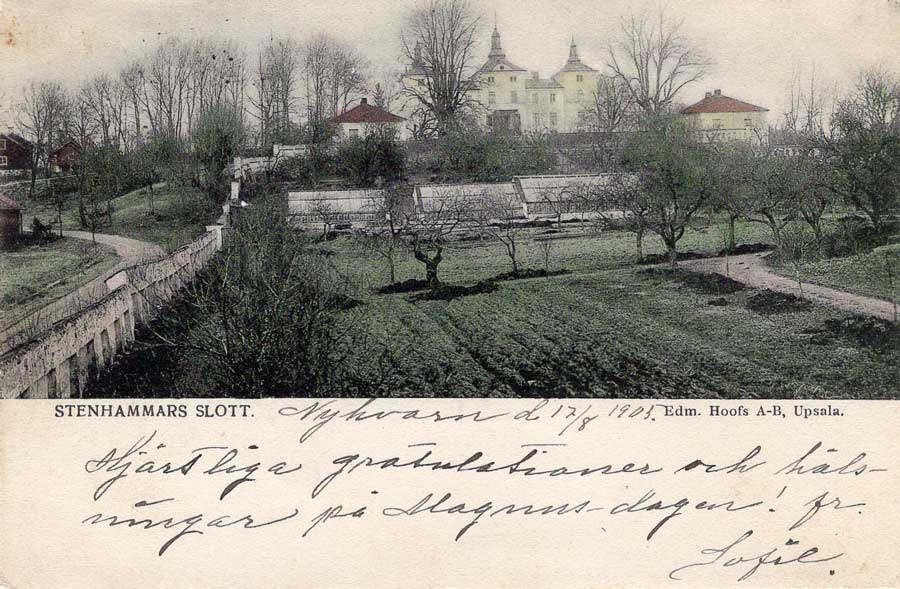 STENHAMMARS SLOTT. Nykvarn d 17/8 1905. Edm. Hoofs A-B, Upsala.
Hjärtliga gratulationer och häls-
ningar på Magnus-dagen! fr.
Sofie.